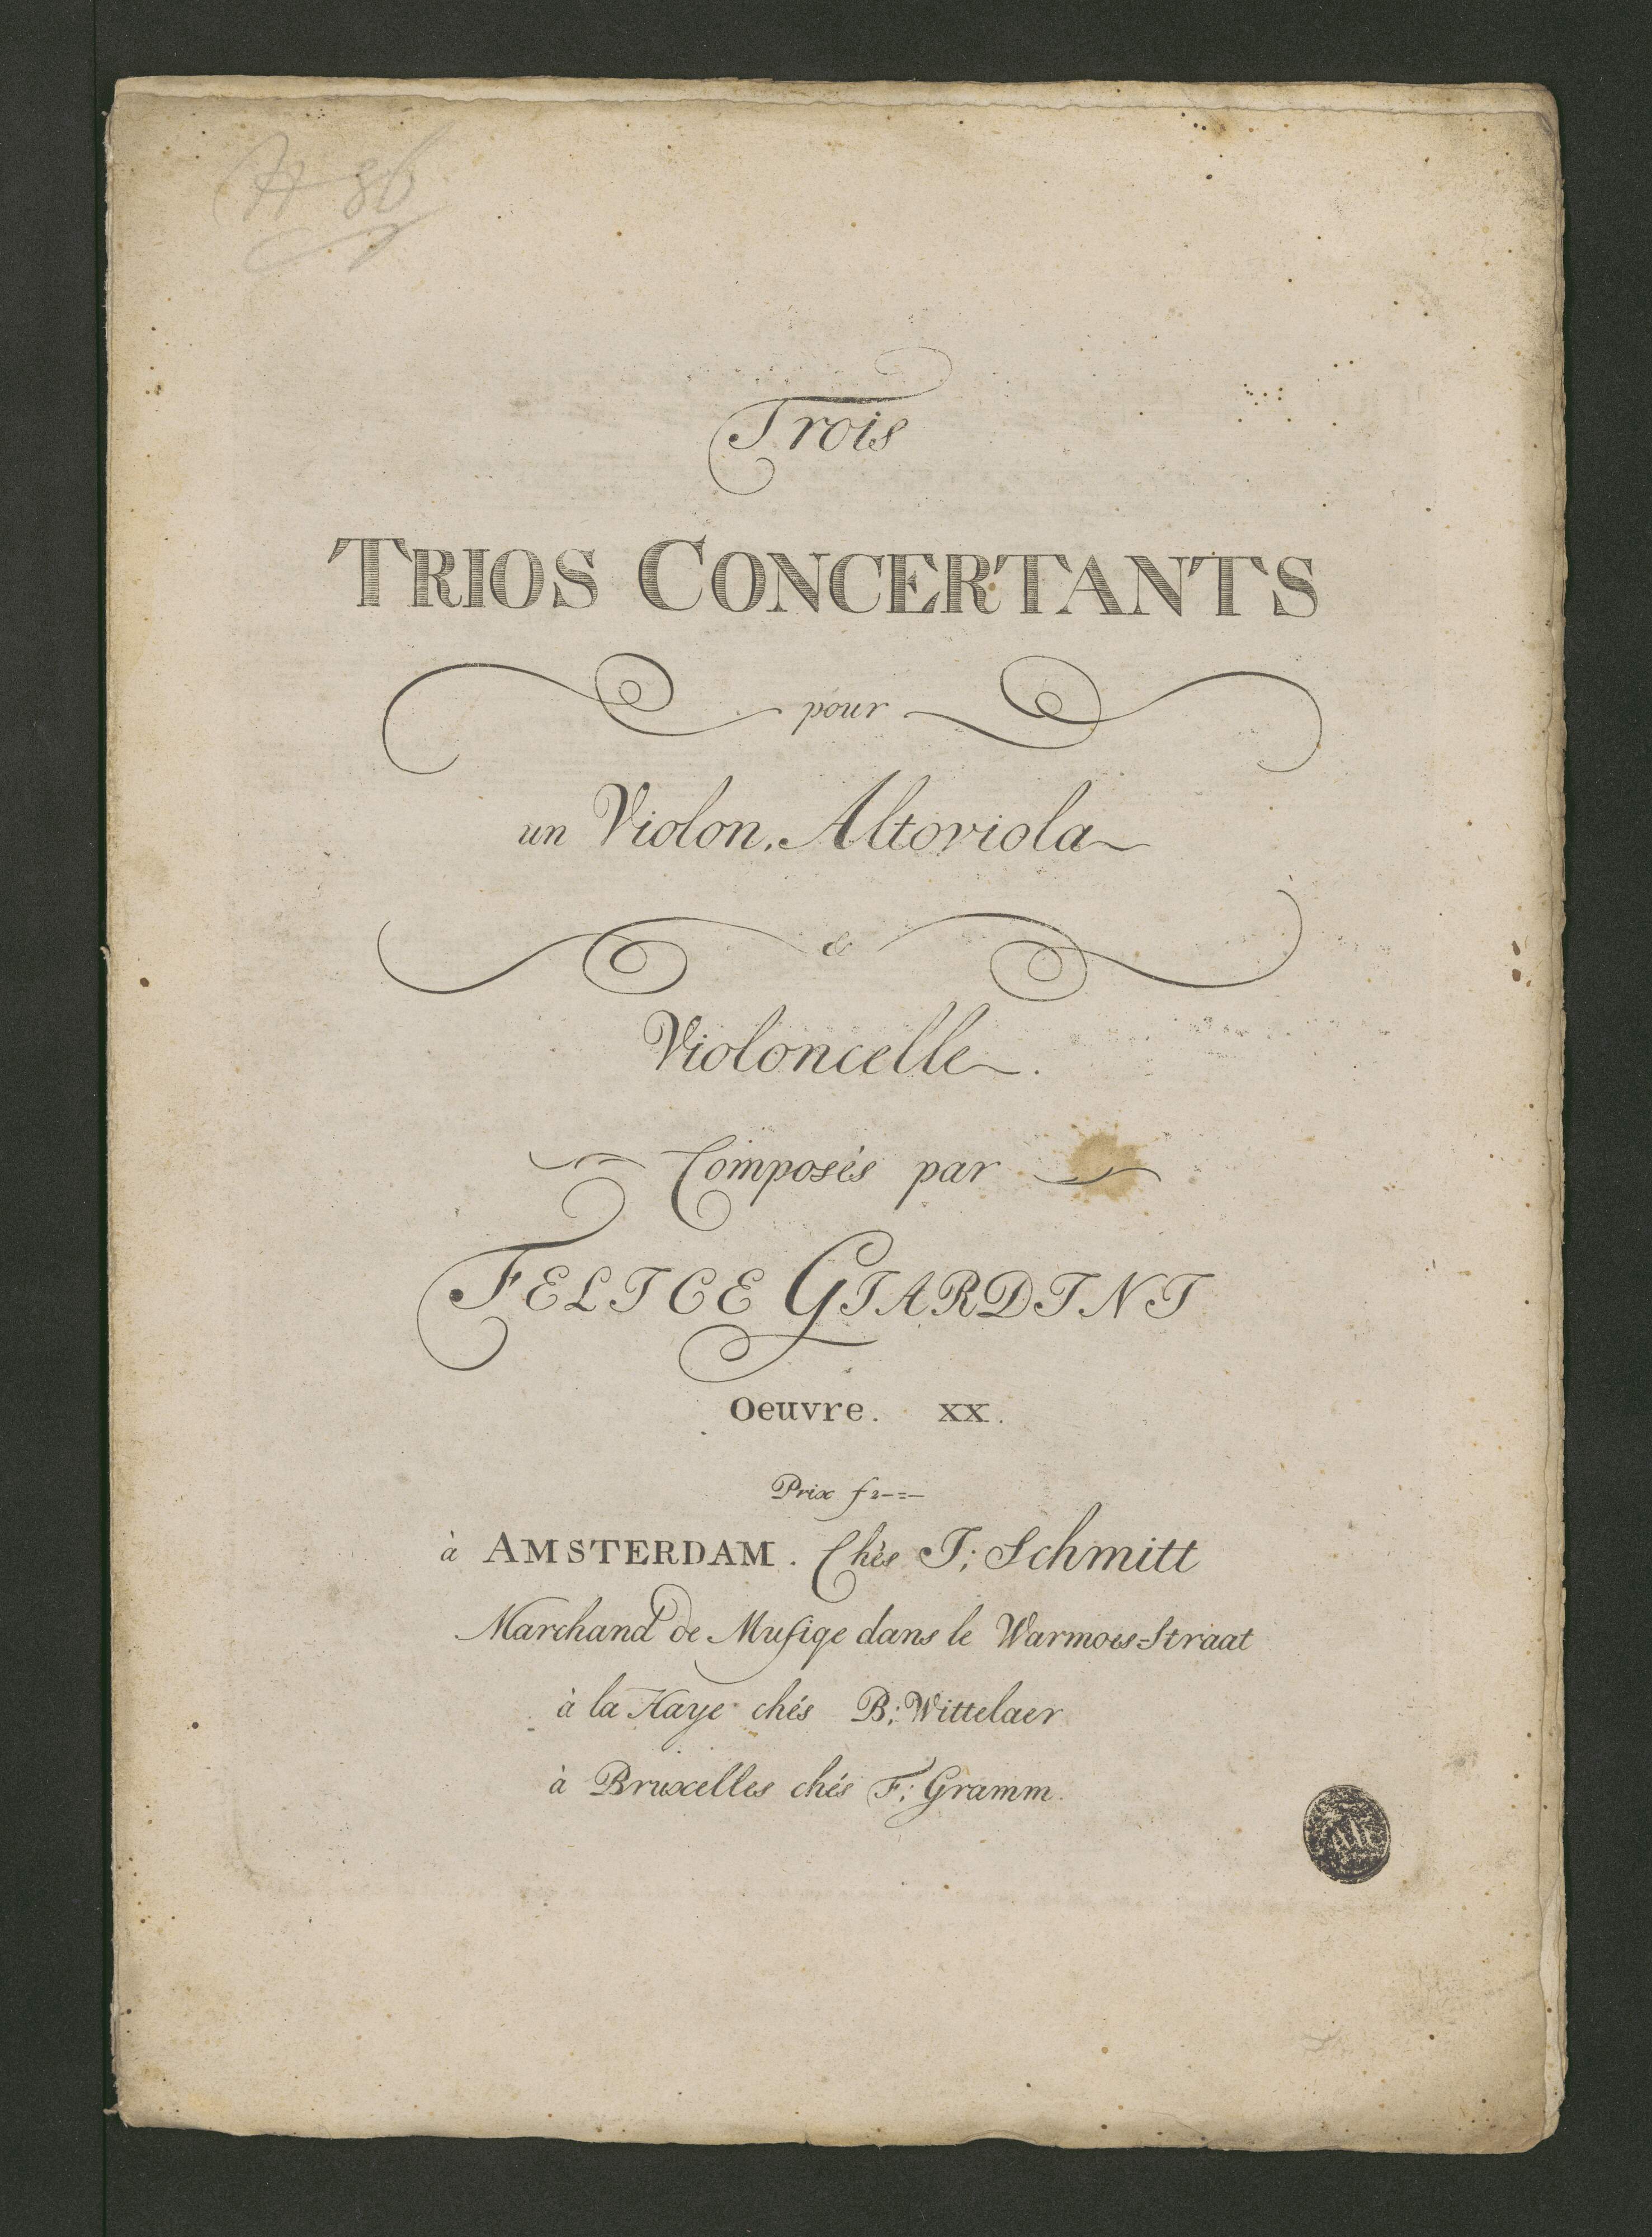 Trois
TRIOS CONCERTANTS
pour
un Violon, Altoviola
&
Violoncelle.
Composés par
FELICE GIARDINI
Oeuvre. XX.
Prix f 2-=-
à AMSTERDAM. Chés J; Schmitt
Marchand de Musiqe dans le Warmoes-Straat
à la Haye chés B; Wittelaer
à Bruxelles chés F; Gramm.